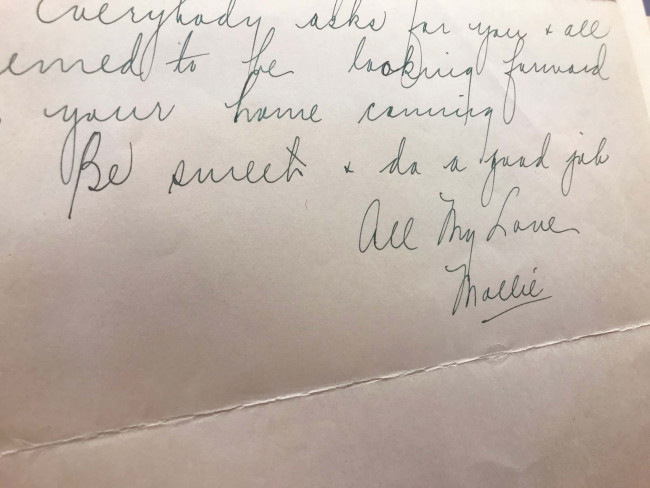 Everybody asks for you + all
emed to be looking forward
your home coming
Be sweet + do a good job
All My Love
Mollie